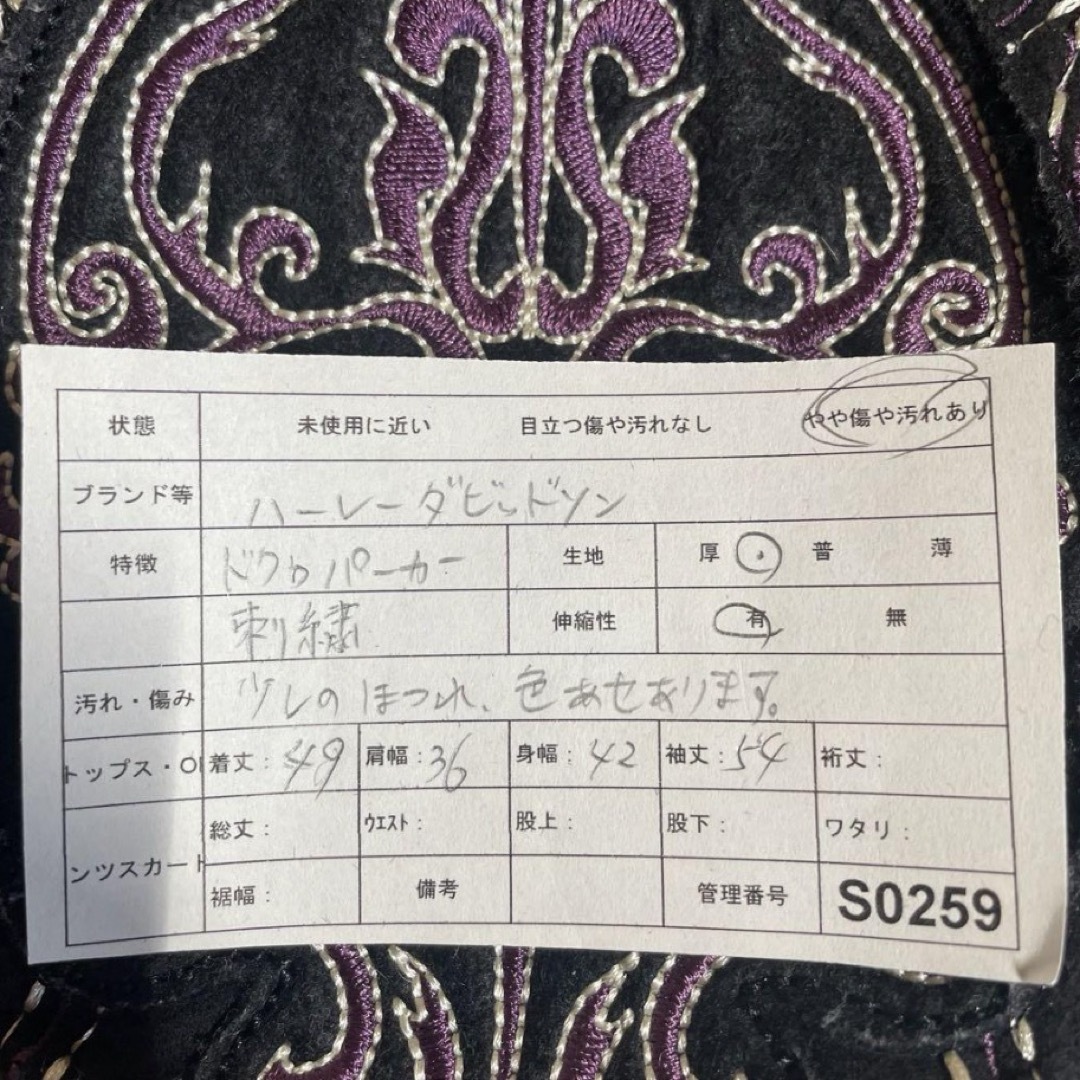 状態 未使用に近い 目立つ傷や汚れなし やや傷や汚れあり
ブランド等 ハーレーダビッドソン
特徴 ドクロパーカー 生地 厚 ・ 普 薄
刺繍 伸縮性 有 無
汚れ・傷み 少しのほつれ、色あせあります。
トップス・O 着丈: 49 肩幅: 36 身幅: 42 袖丈: 54 裄丈:
総丈: ウエスト: 股上: 股下: ワタリ:
ンツスカート
裾幅: 備考 管理番号 S0259